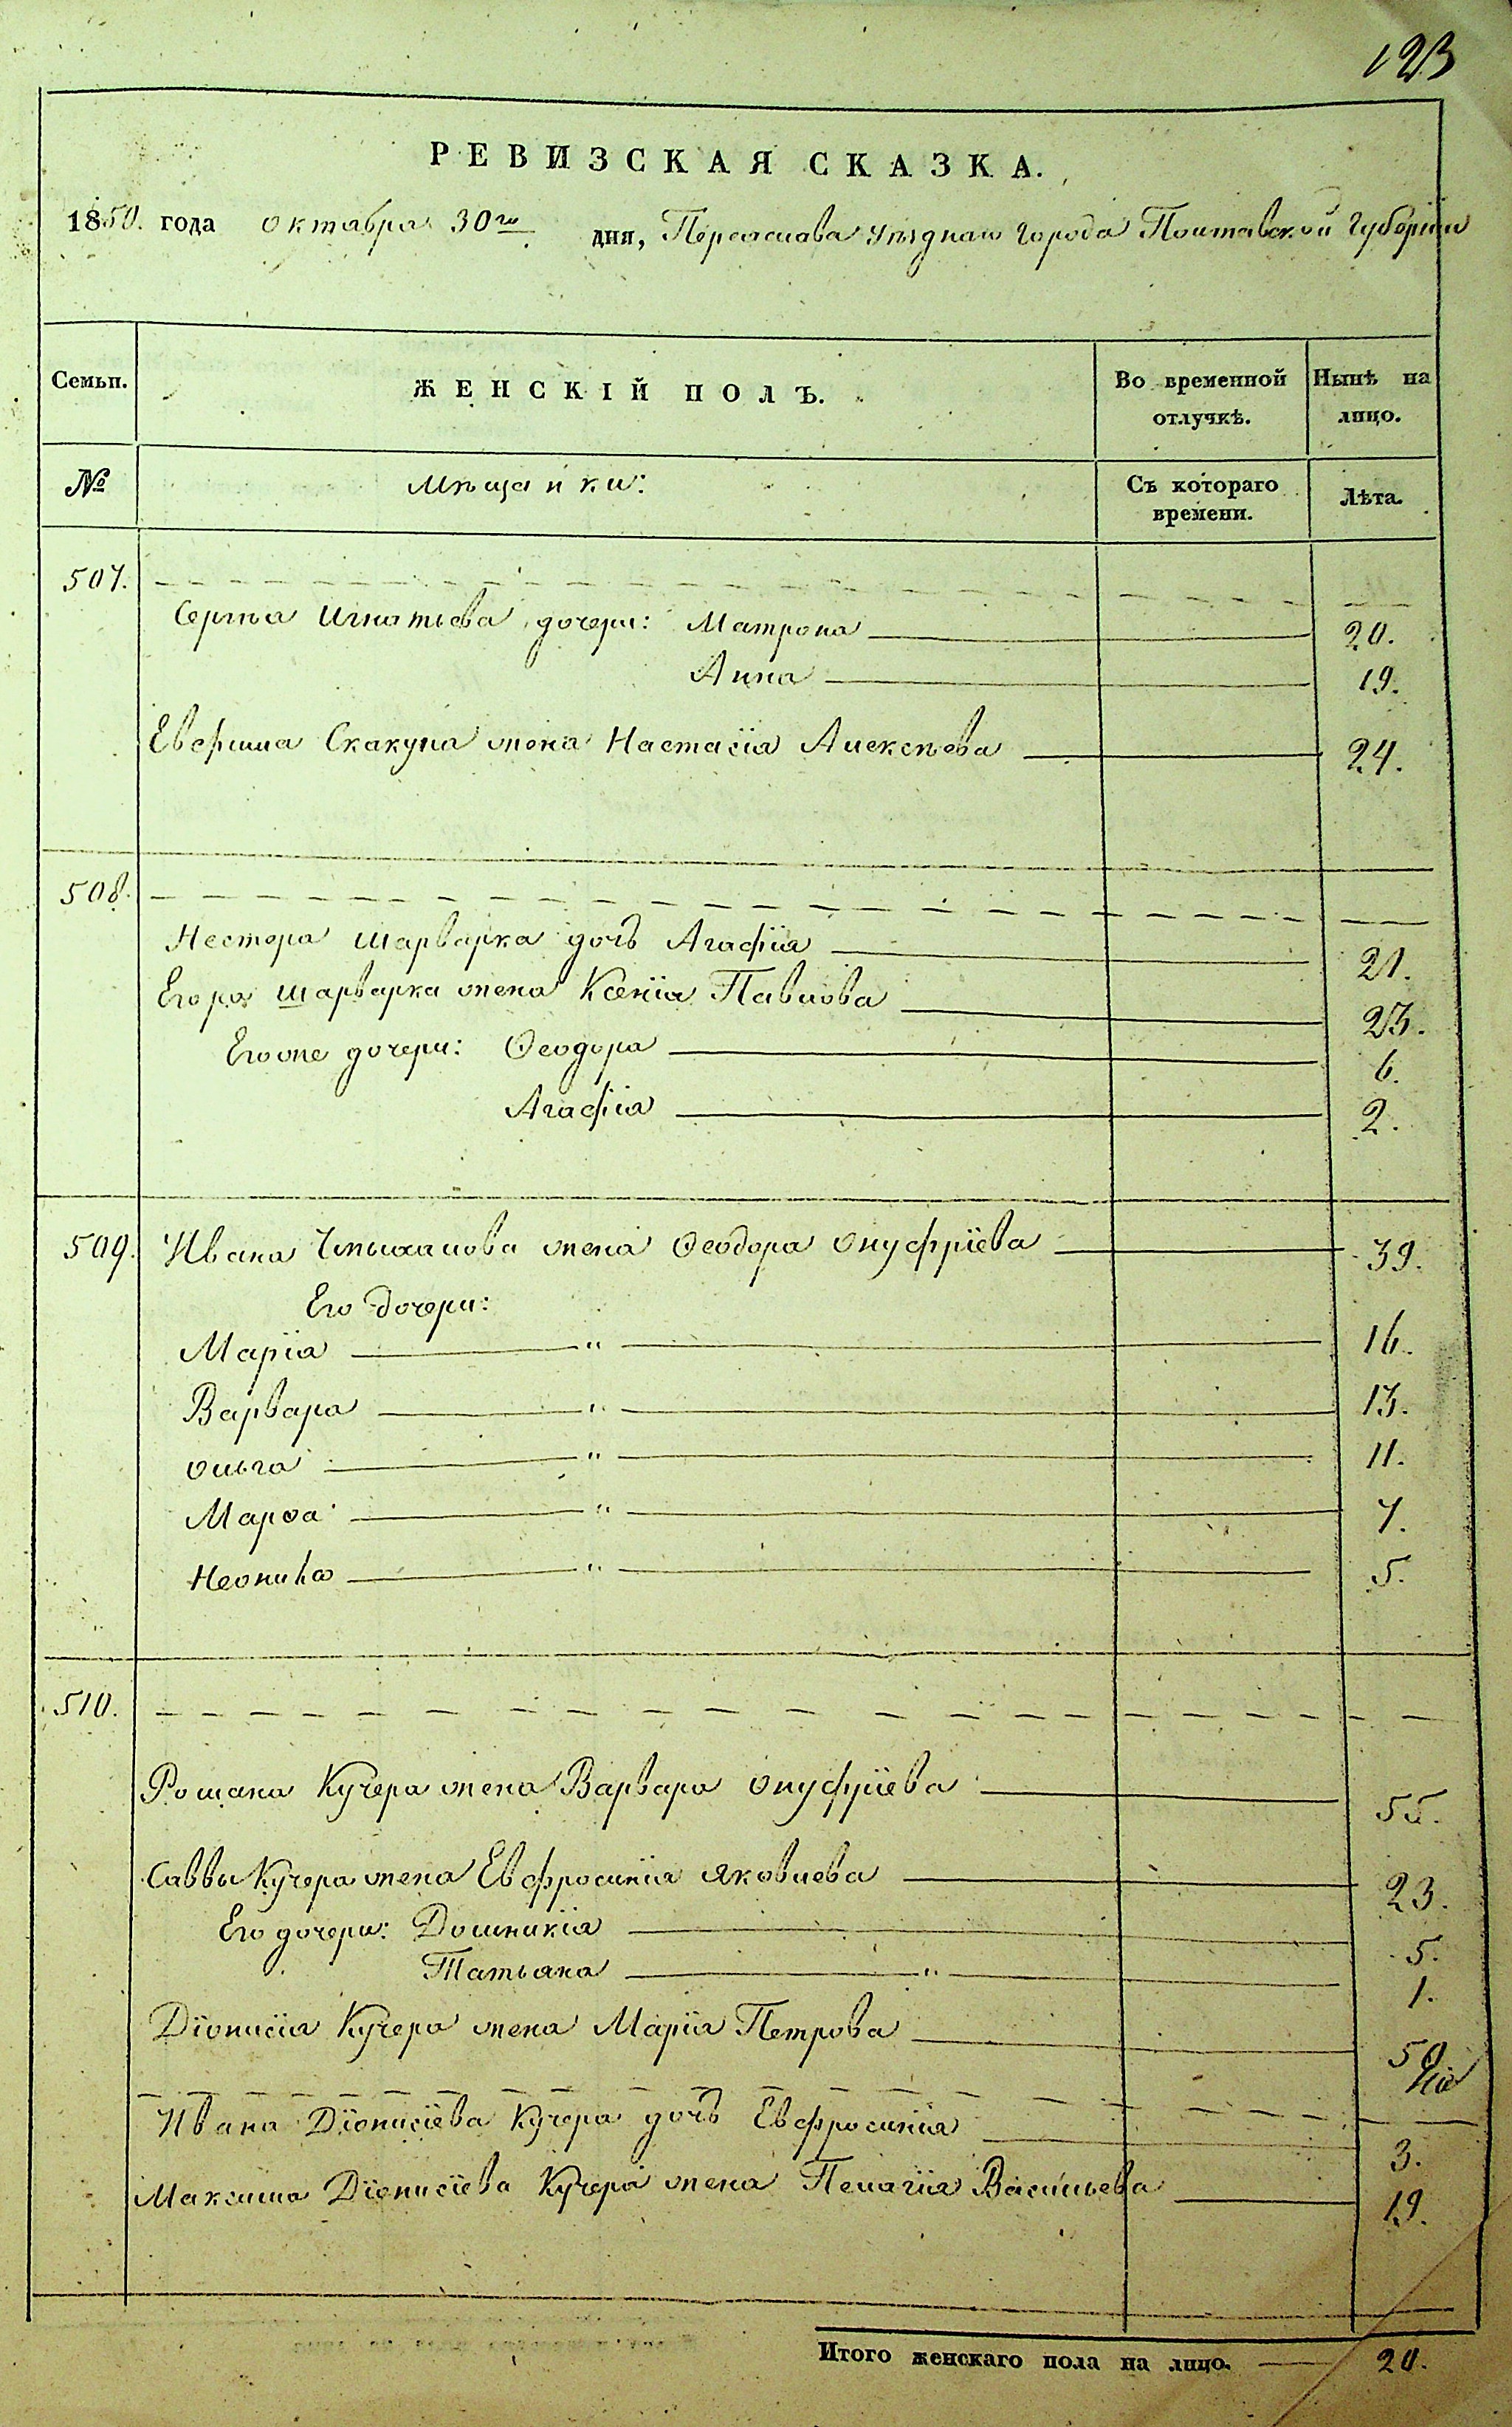 123
РЕВИЗСКАЯ СКАЗКА.
1850. года октября 30го дня, Переяслава уѣзднаго города Полтавской губерніи
Семьи. ЖЕНСКІЙ ПОЛЪ. Во временной отлучкѣ. Нынѣ на лицо.
№ Мѣщанки: Съ котораго времени. Лѣта.
507.
Сергѣя Игнатьева дочери: Матрона 20.
Анна 19.
Евфима Скакуна жена Настасія Алексѣева 24.
508.
Нестера Шарварка дочь Агафія 21.
Егора Шарварка жена Ксенія Павлова 23.
Егоже дочери: Ѳеодора 6.
Агафія 2.
509. Ивана жена Ѳеодора Онуфріева 39.
Его дочери:
Марія " 16.
Варвара " 13.
Ольга " 11.
Марѳа " 7.
Неонила " 5.
510.
Романа Кучера жена Варвара Онуфріева 55.
Саввы Кучера жена Евфросинія Яковлева 23.
Его дочери: Домникія 5.
Татьяна " 1.
Діонисія Кучера жена Марія Петрова 50
Ивана Діонисіева Кучера дочь Евфросинія 3.
Максима Діонисіева Кучера жена Пелагія Васильева 19.
Итого женскаго пола на лицо. 20.